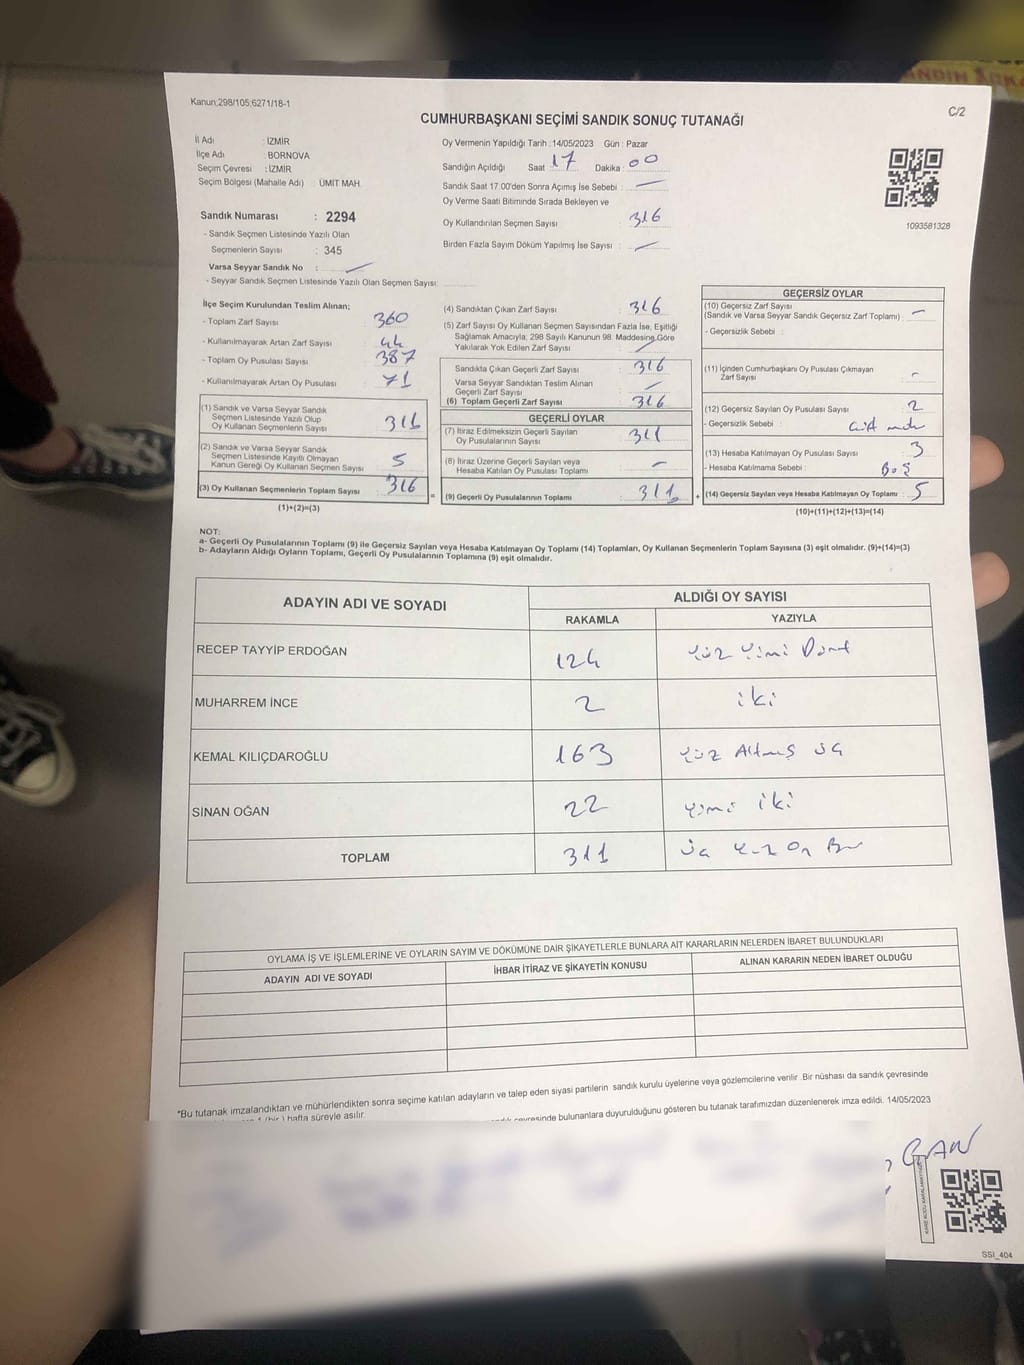 ANDIK ARKA
Kanun;298/105;6271/18-1
C/2
CUMHURBAŞKANI SEÇİMİ SANDIK SONUÇ TUTANAĞI
İl Adı : İZMİR
İlçe Adı : BORNOVA
Seçim Çevresi : İZMİR
Seçim Bölgesi (Mahalle Adı) : ÜMİT MAH.
Oy Vermenin Yapıldığı Tarih :14/05/2023 Gün : Pazar
Sandığın Açıldığı Saat 17 Dakika : 00
Sandık Saat 17.00'den Sonra Açımış İse Sebebi : —
Oy Verme Saati Bitiminde Sırada Bekleyen ve
Oy Kullandırılan Seçmen Sayısı : 316
Birden Fazla Sayım Döküm Yapılmış İse Sayısı : —
1093581328
Sandık Numarası : 2294
- Sandık Seçmen Listesinde Yazılı Olan
Seçmenlerin Sayısı : 345
Varsa Seyyar Sandık No : —
- Seyyar Sandık Seçmen Listesinde Yazılı Olan Seçmen Sayısı:
İlçe Seçim Kurulundan Teslim Alınan;
- Toplam Zarf Sayısı : 360
- Kullanılmayarak Artan Zarf Sayısı : 44
- Toplam Oy Pusulası Sayısı : 387
- Kullanılmayarak Artan Oy Pusulası : 71
(1) Sandık ve Varsa Seyyar Sandık
Seçmen Listesinde Yazılı Olup
Oy Kullanan Seçmenlerin Sayısı : 311
(2) Sandık ve Varsa Seyyar Sandık
Seçmen Listesinde Kayıtlı Olmayan
Kanun Gereği Oy Kullanan Seçmen Sayısı : 5
(3) Oy Kullanan Seçmenlerin Toplam Sayısı : 316
(1)+(2)=(3)
(4) Sandıktan Çıkan Zarf Sayısı : 316
(5) Zarf Sayısı Oy Kullanan Seçmen Sayısından Fazla İse, Eşitliği
Sağlamak Amacıyla; 298 Sayılı Kanunun 98. Maddesine Göre
Yakılarak Yok Edilen Zarf Sayısı : —
Sandıkta Çıkan Geçerli Zarf Sayısı : 316
Varsa Seyyar Sandıktan Teslim Alınan
Geçerli Zarf Sayısı : —
(6) Toplam Geçerli Zarf Sayısı : 316
GEÇERLİ OYLAR
(7) İtiraz Edilmeksizin Geçerli Sayılan
Oy Pusulalarının Sayısı : 311
(8) İtiraz Üzerine Geçerli Sayılan veya
Hesaba Katılan Oy Pusulası Toplamı : —
= (9) Geçerli Oy Pusulalarının Toplamı : 311
GEÇERSİZ OYLAR
(10) Geçersiz Zarf Sayısı
(Sandık ve Varsa Seyyar Sandık Geçersiz Zarf Toplamı) : —
- Geçersizlik Sebebi :
(11) İçinden Cumhurbaşkanı Oy Pusulası Çıkmayan
Zarf Sayısı : -
(12) Geçersiz Sayılan Oy Pusulası Sayısı : 2
- Geçersizlik Sebebi :
(13) Hesaba Katılmayan Oy Pusulası Sayısı : 3
- Hesaba Katılmama Sebebi : Boş
+ (14) Geçersiz Sayılan veya Hesaba Katılmayan Oy Toplamı : 5
(10)+(11)+(12)+(13)=(14)
NOT:
a- Geçerli Oy Pusulalarının Toplamı (9) ile Geçersiz Sayılan veya Hesaba Katılmayan Oy Toplamı (14) Toplamları, Oy Kullanan Seçmenlerin Toplam Sayısına (3) eşit olmalıdır. (9)+(14)=(3)
b- Adayların Aldığı Oyların Toplamı, Geçerli Oy Pusulalarının Toplamına (9) eşit olmalıdır.
ADAYIN ADI VE SOYADI ALDIĞI OY SAYISI
RAKAMLA YAZIYLA
RECEP TAYYİP ERDOĞAN 124 Yüz Yirmi Dört
MUHARREM İNCE 2 iki
KEMAL KILIÇDAROĞLU 163 Yüz Altmış üç
SİNAN OĞAN 22 Yirmi iki
TOPLAM 311 üç Yüz On Bir
OYLAMA İŞ VE İŞLEMLERİNE VE OYLARIN SAYIM VE DÖKÜMÜNE DAİR ŞİKAYETLERLE BUNLARA AİT KARARLARIN NELERDEN İBARET BULUNDUKLARI
ADAYIN ADI VE SOYADI İHBAR İTİRAZ VE ŞİKAYETİN KONUSU ALINAN KARARIN NEDEN İBARET OLDUĞU
*Bu tutanak imzalandıktan ve mühürlendikten sonra seçime katılan adayların ve talep eden siyasi partilerin sandık kurulu üyelerine veya gözlemcilerine verilir .Bir nüshası da sandık çevresinde
hafta süreyle asılır.
çevresinde bulunanlara duyurulduğunu gösteren bu tutanak tarafımızdan düzenlenerek imza edildi. 14/05/2023
SSI_404